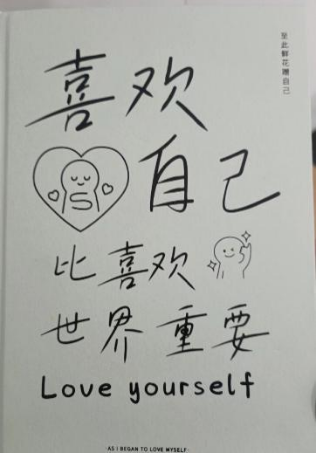 至此鲜花赠自己
喜欢
自己
比喜欢
世界重要
Love yourself
·AS I BEGAN TO LOVE MYSELF·